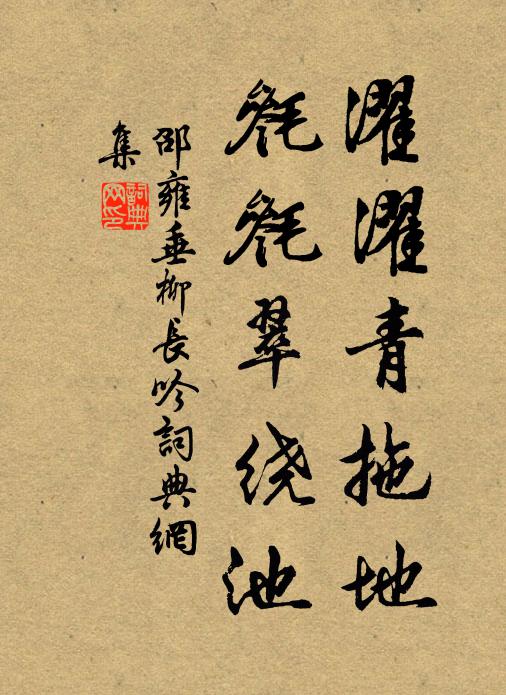 濯濯青拖地
毵毵翠绕池
邵雍垂柳長吟詞典網
集
詞典
网印